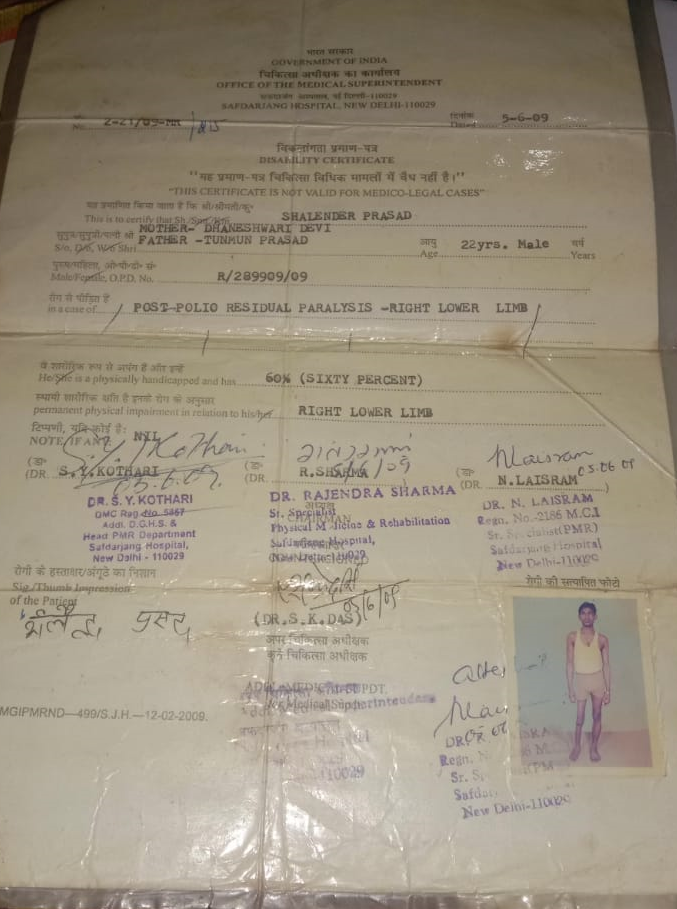 भारत सरकार
GOVERNMENT OF INDIA
चिकित्सा अधीक्षक का कार्यालय
OFFICE OF THE MEDICAL SUPERINTENDENT
सफदरजंग अस्पताल, नई दिल्ली-110029
SAFDARJANG HOSPITAL, NEW DELHI-110029
सं.
No. 2-21/09-MR
दिनांक
Dated 5-6-09
विकलांगता प्रमाण-पत्र
DISABILITY CERTIFICATE
"यह प्रमाण-पत्र चिकित्सा विधिक मामलों में वैध नहीं है।"
"THIS CERTIFICATE IS NOT VALID FOR MEDICO-LEGAL CASES"
यह प्रमाणित किया जाता है कि श्री/श्रीमती/कु॰
This is to certify that Sh./Smt./Km. SHALENDER PRASAD
MOTHER- DHANESHWARI DEVI
सुपुत्र/सुपुत्री/पत्नी श्री FATHER -TUNMUN PRASAD
S/o, D/o, W/o Shri
आयु 22yrs. Male वर्ष
Age Years
पुरुष/महिला, ओ॰पी॰डी॰ सं॰
Male/Female, O.P.D. No. R/289909/09
रोग से पीड़ित हैं
in a case of POST-POLIO RESIDUAL PARALYSIS -RIGHT LOWER LIMB
ये शारीरिक रूप से अपंग हैं और इन्हें
He/She is a physically handicapped and has 60% (SIXTY PERCENT)
स्थायी शारीरिक क्षति है इनके रोग के अनुसार
permanent physical impairment in relation to his/her RIGHT LOWER LIMB
टिप्पणी, यदि कोई है:
NOTE, IF ANY. NIL
S.Y. Kothari
(डा॰ (डा॰ (डा॰
(DR. S.Y.KOTHARI (DR. R.SHARMA (DR. N.LAISRAM
05.6.09. 5/6/09 Nlaisram 05.06.09
DR. S. Y. KOTHARI
DMC Reg No. 5867
Addl. D.G.H.S. &
Head PMR Department
Safdarjang Hospital,
New Delhi - 110029
DR. RAJENDRA SHARMA
Sr. Specialist
अध्यक्ष
CHAIRMAN
Physical Medicine & Rehabilitation
Safdarjang Hospital,
New Delhi-110029
DR. N. LAISRAM
Regn. No.-2186 M.C.I
Sr. Specialist(PMR)
Safdarjang Hospital
New Delhi-110029
रोगी के हस्ताक्षर/अंगूठे का निशान
Sig./Thumb Impression
of the Patient
प्रसाद
रोगी की सत्यापित फोटो
(DR.S.K.DAS)
अपर चिकित्सा अधीक्षक
कृते चिकित्सा अधीक्षक
ADDL. MEDICAL SUPDT.
for Medical Superintendent
110029
MGIPMRND—499/S.J.H.—12-02-2009.
DR.
Regn. N
Sr. S
Safdar
New Delhi-110029